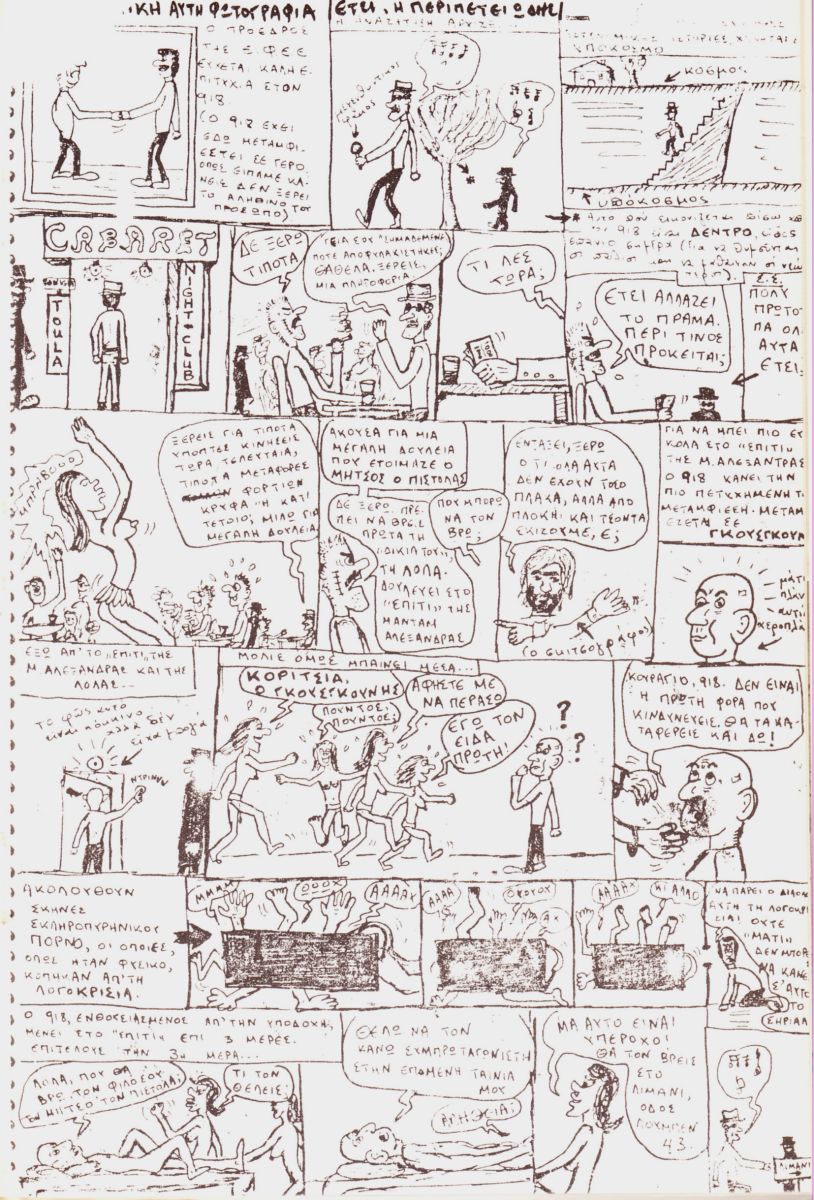 ΙΚΗ ΑΥΤΗ ΦΩΤΟΓΡΑΦΙΑ
Ο ΠΡΟΕΔΡΟΣ
ΤΗΣ Ε.ΦΕΕ
ΕΥΧΕΤΑΙ ΚΑΛΗ Ε-
ΠΙΤΥΧΙΑ ΣΤΟΝ
918.
(Ο 918 ΕΧΕΙ
ΕΔΩ ΜΕΤΑΜΦΙ-
ΕΣΤΕΙ ΣΕ ΓΕΡΟ.
ΟΠΩΣ ΕΙΠΑΜΕ ΚΑ-
ΝΕΙΣ ΔΕΝ ΞΕΡΕΙ
ΤΟ ΑΛΗΘΙΝΟ ΤΟΥ
ΠΡΟΣΩΠΟ)
ΕΤΣΙ, Η ΠΕΡΙΠΕΤΕΙΩΔΗΣ
Η ΑΝΑΖΗΤΗΣΗ ΑΡΧΙΖΕΙ
ΥΠΟΚΟΣΜΟ
κόσμος
υπόκοσμος
918 είναι ΔΕΝΤΡΟ
CABARET
TOULA
NIGHT-CLUB
ΔΕ ΞΕΡΩ
ΤΙΠΟΤΑ
ΓΕΙΑ ΣΟΥ ΑΣΗΜΑΔΕΜΕΝΕ
ΠΟΤΕ ΑΠΟΦΥΛΑΚΙΣΤΗΚΕΣ;
ΘΑΘΕΛΑ ΞΕΡΕΙΣ,
ΜΙΑ ΠΛΗΡΟΦΟΡΙΑ
ΤΙ ΛΕΣ
ΤΩΡΑ;
ΕΤΣΙ ΑΛΛΑΖΕΙ
ΤΟ ΠΡΑΜΑ.
ΠΕΡΙ ΤΙΝΟΣ
ΠΡΟΚΕΙΤΑΙ;
Σ.Σ.
ΠΟΛΥ
ΠΡΩΤΟ
ΠΑ ΟΛ
ΑΥΤΑ
ΕΤΣΙ
ΞΕΡΕΙΣ ΓΙΑ ΤΙΠΟΤΑ
ΥΠΟΠΤΕΣ ΚΙΝΗΣΕΙΣ
ΤΩΡΑ ΤΕΛΕΥΤΑΙΑ,
ΤΙΠΟΤΑ ΜΕΤΑΦΟΡΕΣ
ΦΟΡΤΙΩΝ
ΚΡΥΦΑ Ή ΚΑΤΙ
ΤΕΤΟΙΟ; ΜΙΛΩ ΓΙΑ
ΜΕΓΑΛΗ ΔΟΥΛΕΙΑ
ΑΚΟΥΣΑ ΓΙΑ ΜΙΑ
ΜΕΓΑΛΗ ΔΟΥΛΕΙΑ
ΠΟΥ ΕΤΟΙΜΑΖΕ Ο
ΜΗΤΣΟΣ Ο ΠΙΣΤΟΛΑΣ
ΠΟΥ ΜΠΟΡΩ
ΝΑ ΤΟΝ
ΒΡΩ;
ΔΕ ΞΕΡΩ. ΠΡΕ-
ΠΕΙ ΝΑ ΒΡΕΙΣ
ΠΡΩΤΑ ΤΗ
„ΔΙΚΙΑ ΤΟΥ",
ΤΗ ΛΟΛΑ.
ΔΟΥΛΕΥΕΙ ΣΤΟ
„ΣΠΙΤΙ" ΤΗΣ
ΜΑΝΤΑΜ
ΑΛΕΞΑΝΔΡΑΣ
ΕΝΤΑΞΕΙ, ΞΕΡΩ
Ο,ΤΙ ΟΛΑ ΑΥΤΑ
ΔΕΝ ΕΧΟΥΝ ΤΟΣΟ
ΠΛΑΚΑ, ΑΛΛΑ ΑΠΟ
ΠΛΟΚΗ ΚΑΙ ΤΣΟΝΤΑ
ΣΚΙΖΟΥΜΕ, Ε;
(ο σκιτσογράφος)
ΓΙΑ ΝΑ ΜΠΕΙ ΠΙΟ ΕΥ
ΚΟΛΑ ΣΤΟ „ΣΠΙΤΙ"
ΤΗΣ Μ. ΑΛΕΞΑΝΤΡΑΣ
Ο 918 ΚΑΝΕΙ ΤΗΝ
ΠΙΟ ΠΕΤΥΧΗΜΕΝΗ Τ
ΜΕΤΑΜΦΙΕΣΗ. ΜΕΤΑΜ
ΕΖΕΤΑΙ ΣΕ
ΓΚΟΥΣΓΚΟΥΝ
μάτι
ΕΞΩ ΑΠ'ΤΟ „ΣΠΙΤΙ" ΤΗΣ
Μ. ΑΛΕΞΑΝΔΡΑΣ ΚΑΙ ΤΗΣ
ΛΟΛΑΣ...
το φώς αυτό
είναι κόκκινο
αλλά δεν
είχα μπογιά
ΝΤΡΙΝΝΝ
ΜΟΛΙΣ ΟΜΩΣ ΜΠΑΙΝΕΙ ΜΕΣΑ...
ΚΟΡΙΤΣΙΑ,
Ο ΓΚΟΥΣΓΚΟΥΝΗΣ
ΠΟΥΝΤΟΣ,
ΠΟΥΝΤΟΣ;
ΑΦΗΣΤΕ ΜΕ
ΝΑ ΠΕΡΑΣΩ
ΕΓΩ ΤΟΝ
ΕΙΔΑ
ΠΡΩΤΗ!
? ?
ΚΟΥΡΑΓΙΟ, 918. ΔΕΝ ΕΙΝΑΙ
Η ΠΡΩΤΗ ΦΟΡΑ ΠΟΥ
ΚΙΝΔΥΝΕΥΕΙΣ. ΘΑ ΤΑ ΚΑ-
ΤΑΦΕΡΕΙΣ ΚΑΙ ΔΩ!
ΑΚΟΛΟΥΘΟΥΝ
ΣΚΗΝΕΣ
ΣΚΛΗΡΟΠΥΡΗΝΙΚΟΥ
ΠΟΡΝΟ, ΟΙ ΟΠΟΙΕΣ,
ΟΠΩΣ ΗΤΑΝ ΦΥΣΙΚΟ,
ΚΟΠΗΚΑΝ ΑΠ'ΤΗ
ΛΟΓΟΚΡΙΣΙΑ.
ΜΜΜΜ
ΟΟΟΧ
ΑΑΑΑΧ
ΑΑΑΑ
ΟΧΟΥΟΥ
ΑΧ
ΑΑΑΑΧ
ΚΙ ΑΛΛΟ
ΝΑ ΠΑΡΕΙ Ο ΔΙΑΟΛ
ΑΥΤΗ ΤΗ ΛΟΓΟΚΡΙ
ΣΙΑ! ΟΥΤΕ
"ΜΑΤΙ"
ΔΕΝ ΜΠΟΡΕ
ΝΑ ΚΑΝΕ
Σ'ΑΥΤΟ
ΤΟ
ΣΗΡΙΑΛ
Ο 918, ΕΝΘΟΥΣΙΑΣΜΕΝΟΣ ΑΠ'ΤΗΝ ΥΠΟΔΟΧΗ,
ΜΕΝΕΙ ΣΤΟ "ΣΠΙΤΙ" ΕΠΙ 3 ΜΕΡΕΣ.
ΕΠΙΤΕΛΟΥΣ ΤΗΝ 3η ΜΕΡΑ...
ΛΟΛΑ, ΠΟΥ ΘΑ
ΒΡΩ ΤΟΝ ΦΙΛΟ ΣΟΥ
ΤΟΝ ΜΗΤΣΟ ΤΟΝ ΠΙΣΤΟΛΑ;
ΤΙ ΤΟΝ
ΘΕΛΕΙΣ;
ΘΕΛΩ ΝΑ ΤΟΝ
ΚΑΝΩ ΣΥΜΠΡΩΤΑΓΩΝΙΣΤΗ
ΣΤΗΝ ΕΠΟΜΕΝΗ ΤΑΙΝΙΑ
ΜΟΥ
ΑΛΗΘΕΙΑ;
ΜΑ ΑΥΤΟ ΕΙΝΑΙ
ΥΠΕΡΟΧΟ!
ΘΑ ΤΟΝ ΒΡΕΙΣ
ΣΤΟ
ΛΙΜΑΝΙ,
ΟΔΟΣ
ΛΟΥΜΠΕΝ
43.
ΛΙΜΑΝΙ